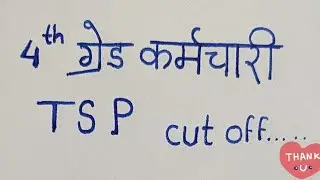 4th ग्रेड कर्मचारी
TSP cut off.....
THANK
U